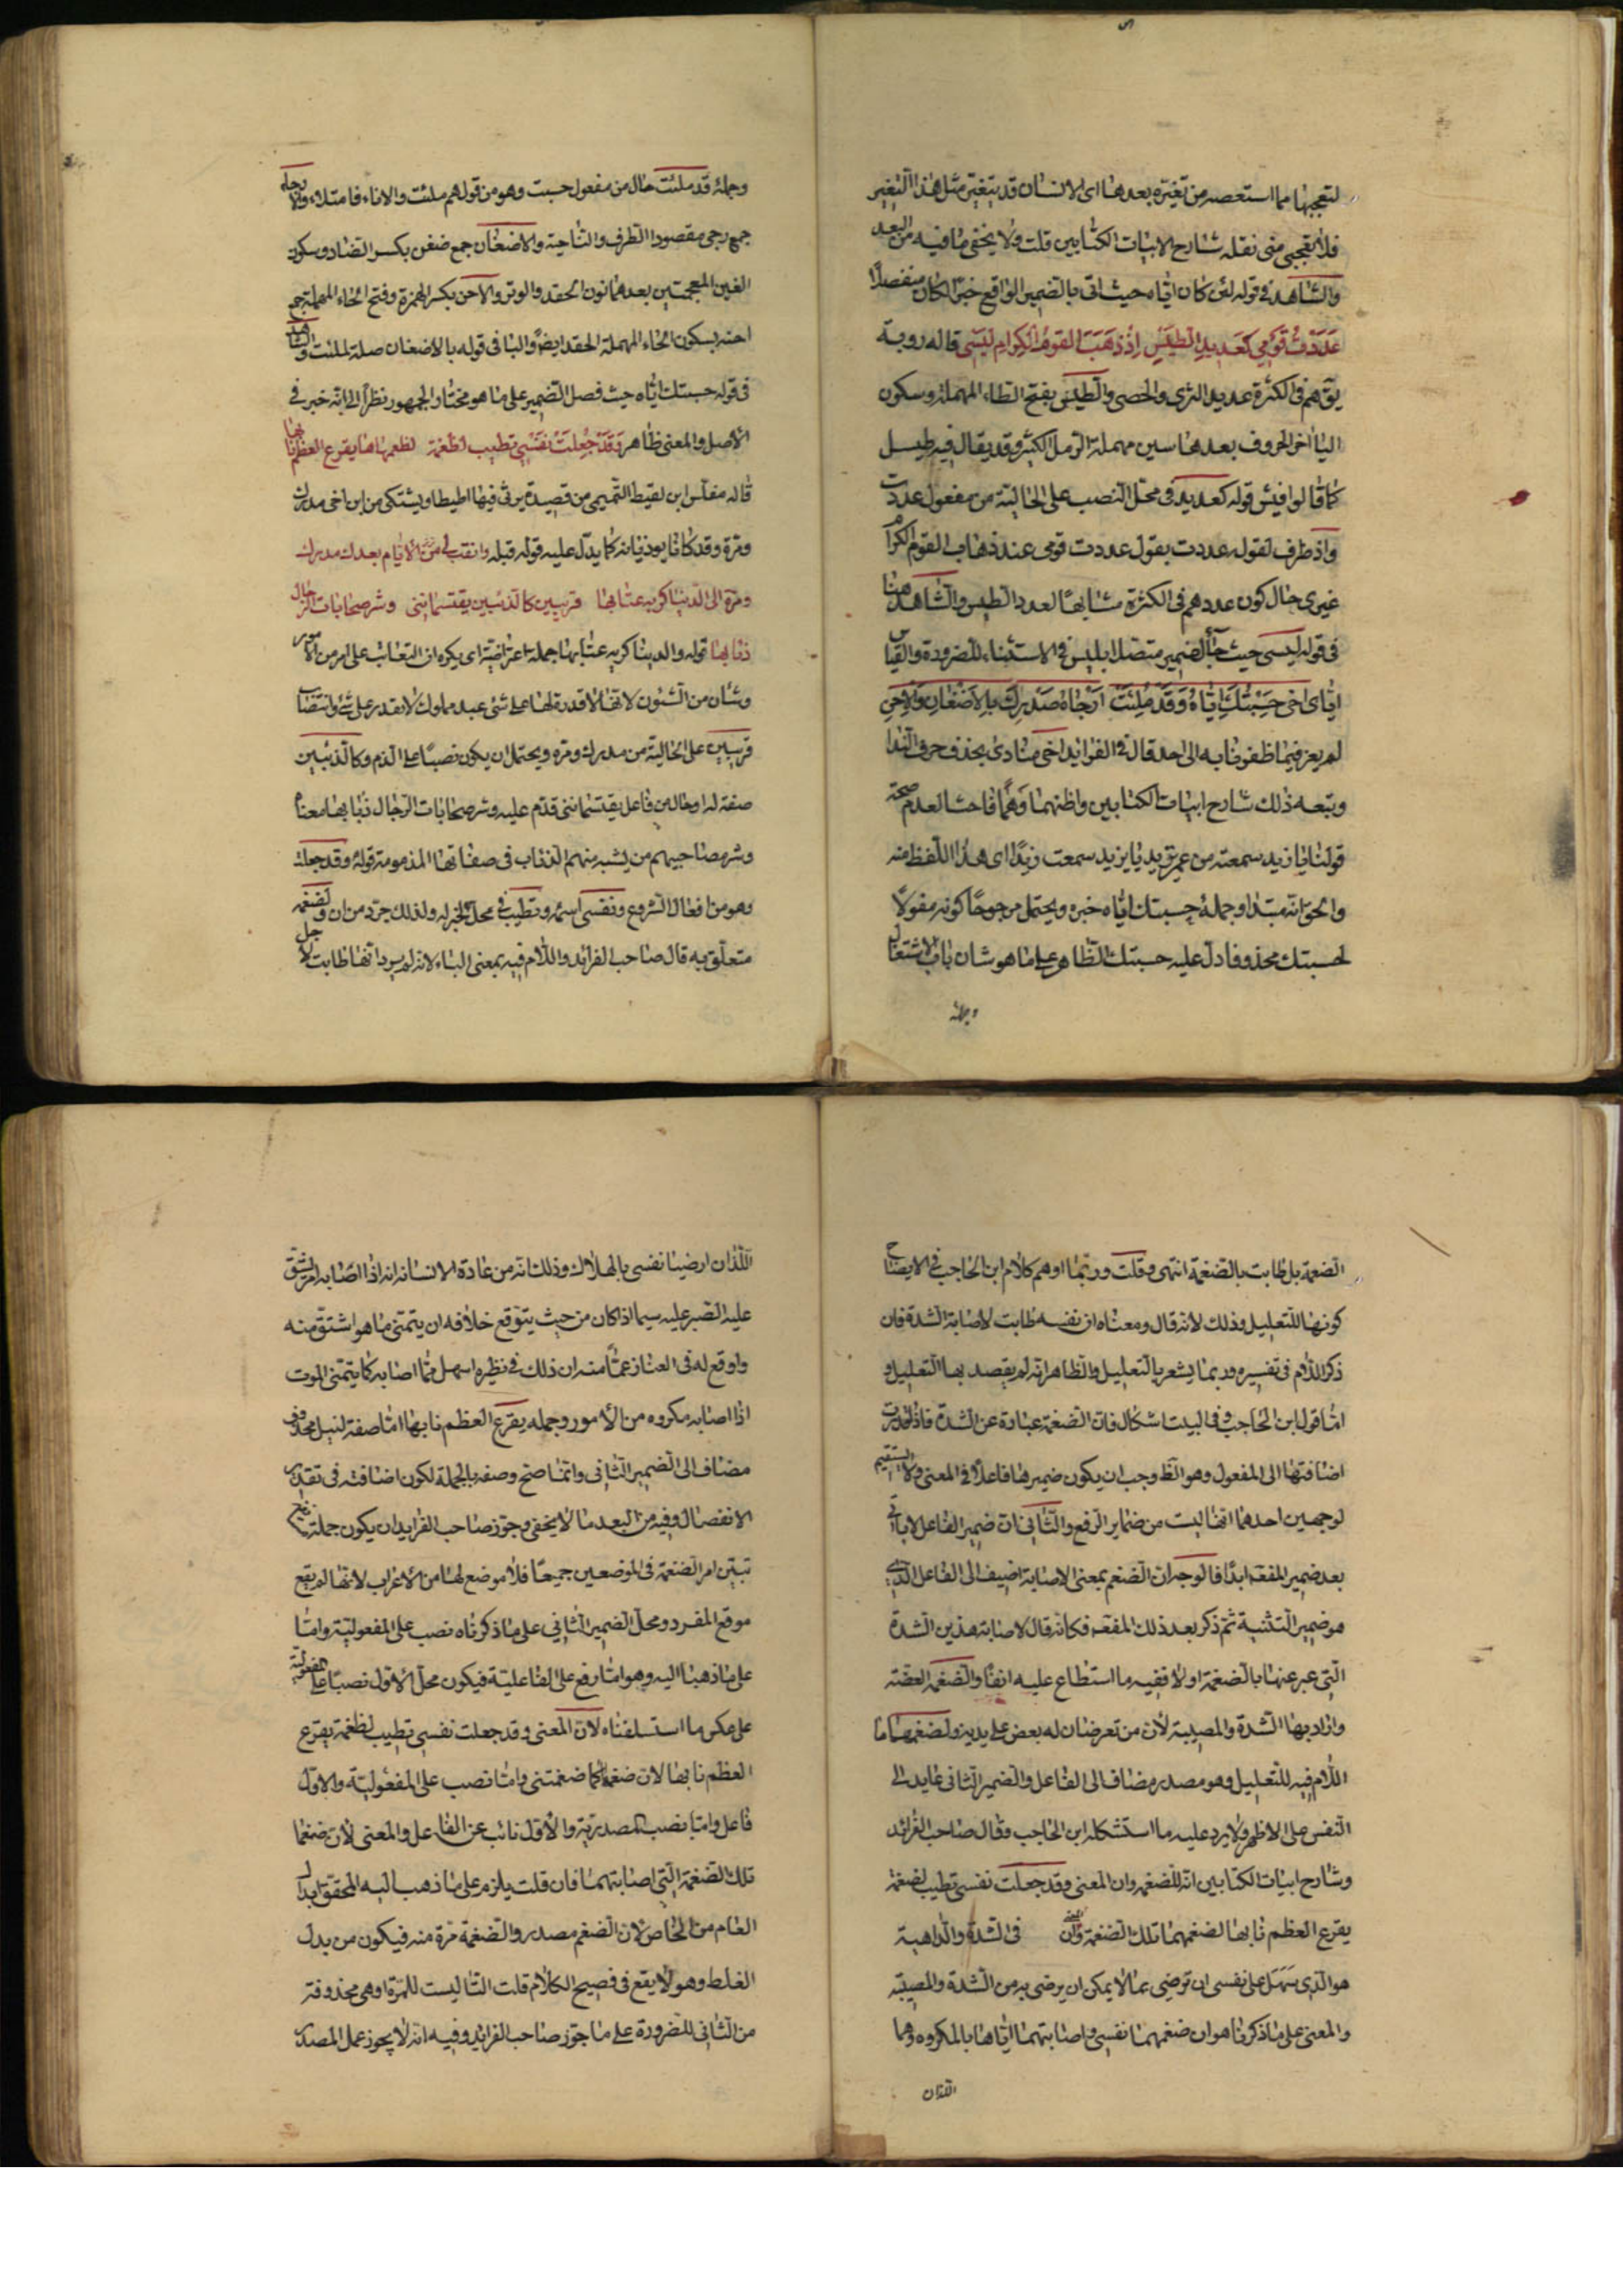 لتعجبها مما استعصه من تغيره بعدها اى الانسان قد يتغير مثل هذا التغير
فلا تعجبى منى نقله شارح الابيات الكتابين قلت ولا يخفى ما فيه من البعد
والشاهد فى قوله لئن كان اياه حيث اتى بالضمير الواقع خبرا لكان منفصلا
عَدَدْتُ قَوْمِى كَعَدِيدِ الطَيْسِ اِذْ ذَهَبَ القومُ الكِرام لَيْسِى قاله روبة
يق هم فى الكثرة عديد الثرى والحصى والطيس بفتح الطاء المهملة وسكون
اليا اخر الحروف بعدها سين مهملة الرمل الكثير وقد يقال فيه طيسل
كما قالوا فيش قوله كعديد فى محل النصب على الحالية من مفعول عددت
واذ ظرف لقوله عددت يقول عددت قومى عند ذهاب القوم الكرام
غيرى حال كون عددهم فى الكثرة مشابها لعدد الطيس والشاهد هنا
فى قوله ليسى حيث جاء الضمير متصلا بليس فى الاستثناء للضرورة والقياس
اياى اخى حَسِبْتُكَ اِيّاهُ وَقَدْ مُلِئَتْ اَرْجاءُ صَدْرِكَ بِالاَضْغانِ وَالاِحَنِ
لم يعز فيما ظفرنا به الى احد قال فى الفرائد اخى منادى بحذف حرف الندا
وتبعه ذلك شارح ابيات الكتابين واظنهما وهما فاحشا لعدم صحة
قولنا يا زيد سمعته من عمرو يريد يا يزيد سمعت زيدا اى هذا اللفظ منه
والحق انه مبتدا وجملة حسبتك اياه خبره ويحتمل مرجوحا كونه مفعولا
لحسبتك محذوفا دل عليه حسبتك الظاهر على ما هو شان باب الاشتغال
وجملة
وجملة قد ملئت حال من مفعول حسبت وهو من قولهم ملئت والاناء فامتلاء والارجاء
جمع رجى مقصورا الطرف والناحية والاضغان جمع ضغن بكسر الضاد وسكون
الغين المعجمتين بعدهما نون الحقد والوتر والاحن بكسر الهمزة وفتح الحاء المهملة جمع
احنة بسكون الحاء المهملة الحقد ايضا والبا فى قوله بالاضغان صلة لملئت والشاهد
فى قوله حسبتك اياه حيث فصل الضمير على ما هو مختار الجمهور نظرا الى انه خبر فى
الاصل والمعنى ظاهر وَقَدْ جَعَلَتْ نَفْسِى تطيب لضغمة لضغمهماها يقرع العظم نابها
قاله مغلس ابن لقيط التميمى من قصيدة يرثى فيها اطيطا ويشتكى من ابن اخى مدرك
ومرة وقد كانا يوذيانه كما يدل عليه قوله قبله وابقت لى الايام بعدك مدرك
ومرة الى الدنيا كريه عتابها قريبين كالذئبين يقتسماننى وشر صحابات الرجال
ذئابها قوله والدنيا كريه عتابها جملة اعتراضية اى يكره ان التعاتب على امر من الامور
وشان من الشئون لانها لا قدرة لها على شئ عبد مملوك لا يقدر على شئ وانتصاب
قريبين على الحالية من مدرك ومرة ويحتمل ان يكون نصبا على الذم وكالذئبين
صفة له او حال من فاعل يقتسماننى قدم عليه وشر صحابات الرجال ذئابها معناه
وشر مصاحبيهم من يشبه منهم الذئاب فى صفاتها المذمومة قوله وقد جعلت
وهو من افعال الشروع ونفسى اسمه وتطيب فى محل الخبر له ولذلك جرد من ان ولضغمة
متعلق به قال صاحب الفرائد واللام فيه بمعنى الباء لانه لم يرد انها طابت لاجل
الضغمة بل طابت بالضغمة انتهى وقلت وربما اوهم كلام ابن الحاجب فى الايضاح
كونها للتعليل وذلك لانه قال ومعناه ان نفسه طابت لاصابة الشدة فان
ذكر اللام فى تفسيره ربما يشعر بالتعليل والظاهر انه لم يقصد بها التعليل و
اما قول ابن الحاجب وفى البيت اشكال فان الضغمة عبارة عن الشدة فاذا قدرت
اضافتها الى المفعول وهو الظ وجب ان يكون ضميرها فاعلا فى المعنى ولا يستقيم
لوجهين احدهما انها ليست من ضماير الرفع والثانى ان ضمير الفاعل لا ياتى
بعد ضمير المفعه ابدا فالوجه ان الضغم بمعنى الاصابة اضيف الى الفاعل الذى
هو ضمير التثنية ثم ذكر بعد ذلك المفعه فكانه قال لاصابة هذين الشدة
التى عبر عنها بالضغمة اولا ففيه ما استطلع عليه انفا والضغمة العضة
واراد بها الشدة والمصيبة لان من تعرضان له بعض على يديه ولضغمهماها
اللام فيه للتعليل وهو مصدر مضاف الى الفاعل والضمير الثانى عايد الى
النفس على الاظهر ولا يرد عليه ما استشكله ابن الحاجب وقال صاحب الفرائد
وشارح ابيات الكتابين انه للضغمة وان المعنى وقد جعلت نفسى تطيب لضغمة
يقرع العظم نابها لضغمهما تلك الضغمة وان فى الشدة والداهية
هو الذى سهل على نفسى ان ترضى بما لا يمكن ان يرضى به من الشدة والمصيبة
والمعنى على ما ذكرنا هو ان ضغمهما نفسى واصابتهما اياها بالمكروه وهما
اللذان
اللذان ارضيا نفسى بالهلاك وذلك انه من عادة الانسان انه اذا اصابه امر يشق
عليه الصبر عليه سيما اذا كان من حيث يتوقع خلافه ان يتمنى ما هو اشق منه
واوقع له فى العنا زعما منه ان ذلك فى نظيره اسهل مما اصابه كما يتمنى الموت
اذا اصابه مكروه من الامور وجملة يقرع العظم نابها اما صفة لنيل محذوف
مضاف الى الضمير الثانى وانما صح وصفه بالجملة لكون اضافته فى تقدير
الانفصال وفيه من البعد ما لا يخفى وجوز صاحب الفرايد ان يكون جملة
تبين امر الضغمة فى الموضعين جميعا فلا موضع لها من الاعراب لانها لم يقع
موقع المفرد ومحل الضمير الثانى على ما ذكرناه نصب على المفعولية واما
على ما ذهبا اليه وهو اما رفع على الفاعلية فيكون محل الاول نصبا على المفعولية
على عكس ما استلفناه لان المعنى وقد جعلت نفسى تطيب لضغمة يقرع
العظم نابها لان ضغمة كما ضغمتنى واما نصب على المفعولية والاول
فاعل واما نصب المصدرية والاول نائب عن الفاعل والمعنى لان ضغما
تلك الضغمة التى اصابتهما فان قلت يلزم على ما ذهب اليه المحقق ابدال
العام من الخاص لان الضغم مصدر والضغمة مرة منه فيكون من بدل
الغلط وهو لا يقع فى فصيح الكلام قلت التا ليست للمرة او هى محذوفة
من الثانى للضرورة على ما جوز صاحب الفرايد وفيه انه لا يجوز عمل المصدر